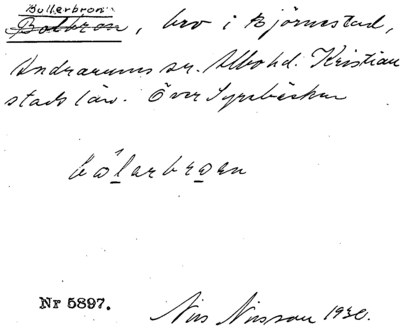 Bullerbron
Bolbron, bro i Björnestad,
Andrarums sn. Albo hd. Kristian
stads län. Över Lyrebäcken
bólarbroen
Nr 5897.
Nils Nilsson 1930.